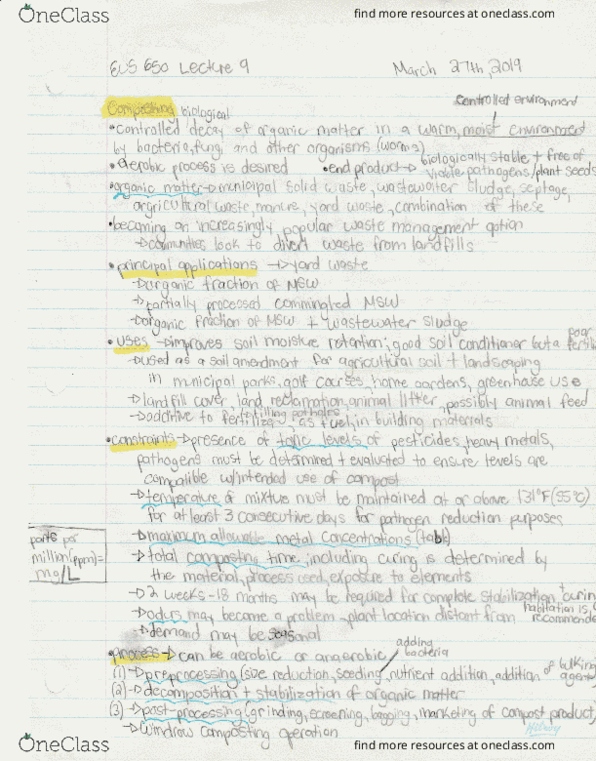 OneClass
find more resources at oneclass.com
EUS 650 Lecture 9 March 27th, 2019
controlled environment
Composting biological
•controlled decay of organic matter in a warm, moist environment
by bacteria, fungi and other organisms (worms)
•Aerobic process is desired •end product→ biologically stable + free of
viable pathogens/plant seeds
•organic matter→municipal solid waste, wastewater sludge, septage,
agricultural waste, manure, yard waste, combination of these
•becoming an increasingly popular waste management option
→communities look to divert waste from landfills
•principal applications →yard waste
→organic fraction of MSW
→partially processed commingled MSW
→organic fraction of MSW + wastewater sludge
•uses →improves soil moisture retention; good soil conditioner but a poor
→used as a soil amendment for agricultural soil + landscaping
in municipal parks, golf courses, home gardens, greenhouse use
→landfill cover, land reclamation, animal litter, possibly animal feed
filling potholes
→additive to as fuel, in building materials
•constraints→presence of toxic levels of pesticides, heavy metals,
pathogens must be determined + evaluated to ensure levels are
compatible w/intended use of compost
→temperature of mixture must be maintained at or above 131°F(55°C)
for at least 3 consecutive days for pathogen reduction purposes
→maximum allowable metal concentrations (table)
parts per
million(ppm)=
mg/L
→total composting time, including curing is determined by
the material, process used, exposure to elements
→2 weeks-18 months may be required for complete stabilization + curing
→odurs may become a problem→plant location distant from habitation is
→demand may be seasonal
adding
bacteria
•process→ can be aerobic or anaerobic
(1)→preprocessing (size reduction, seeding, nutrient addition, addition of bulking agent)
(2)→decomposition + stabilization of organic matter
(3)→post-processing (grinding, screening, bagging, marketing of compost product)
→windrow composting operation
OneClass
find more resources at oneclass.com